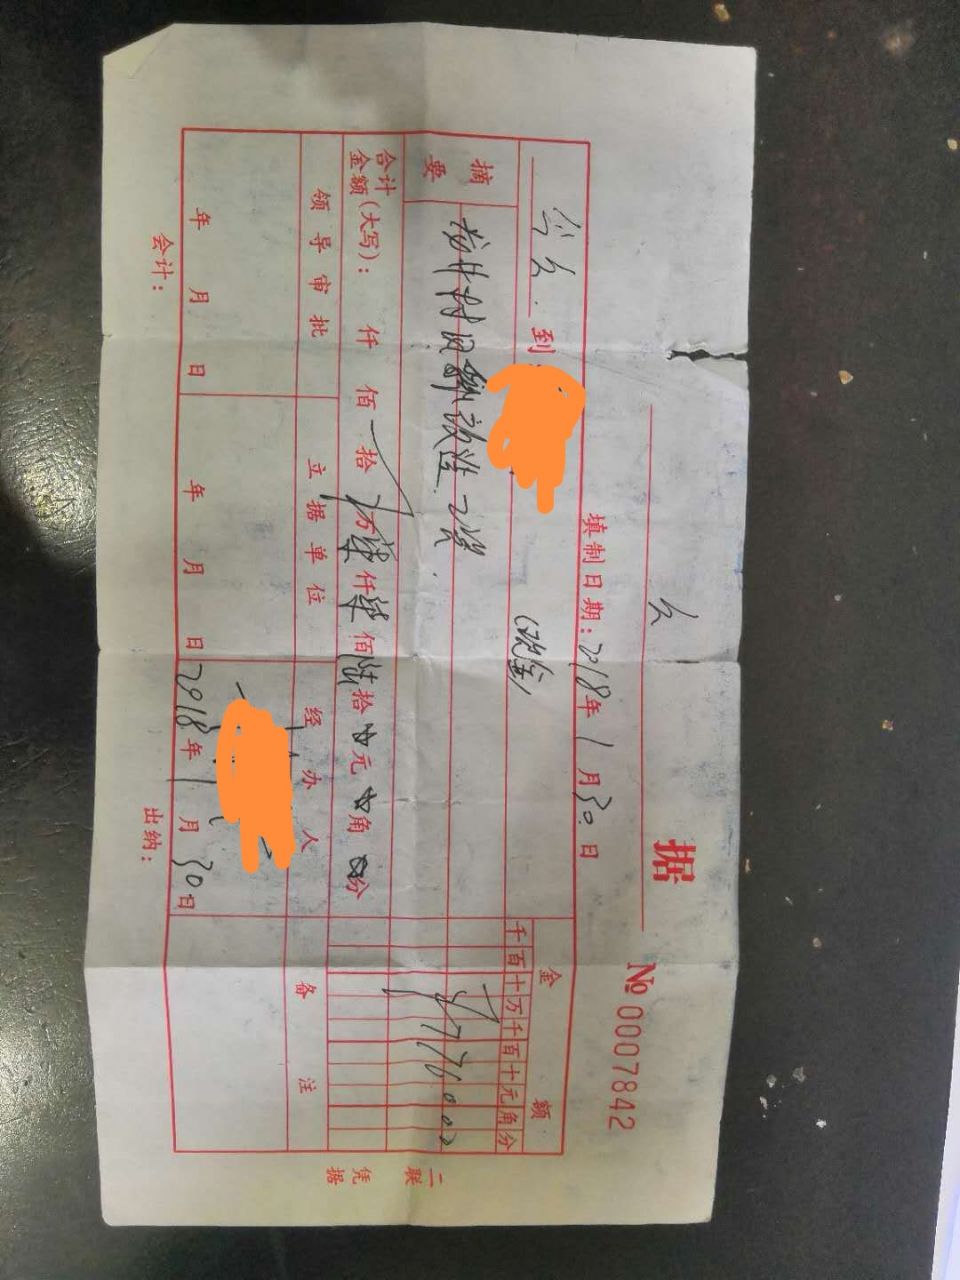 欠 据 № 0007842
填制日期：2018年1月30日
今欠到：
(现金)
金额
千百十万千百十元角分
摘要
村 工资
￥7760.00
合计金额(大写)： 仟 佰 拾 万柒仟柒佰陆拾 元 角 分
领导审批 立据单位 经办人 备注
年 月 日 年 月 日 2018年1月30日
会计： 出纳：
二联 凭据